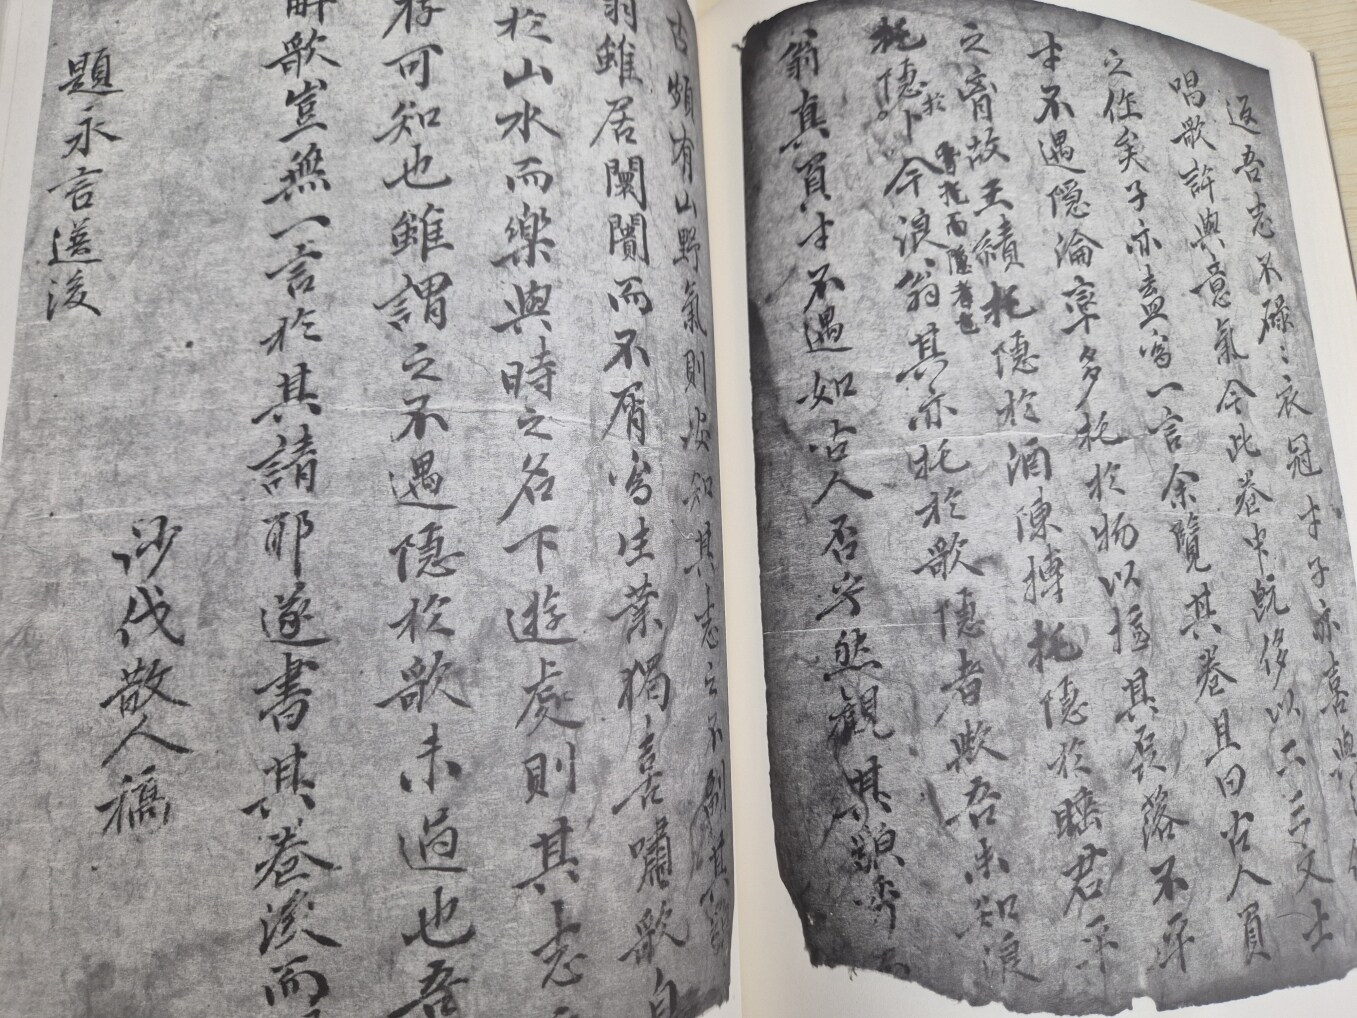 返吾志不碌〻衣冠才子亦喜與
唱歌許與意氣今此卷中旣侈以二三文士
之作矣子亦盍寫一言余覽其卷且曰古人負
才不遇隱淪寧多托於物以 其 落不平
之 故王績托隱於酒陳摶托隱於睡君平
托隱於卜
而隱者也
今浪翁其亦托於歌隱者歟吾未知浪
翁眞負才不遇如古人否乎然觀其 而
古頗有山野氣則安知其志之不 其
翁雖居闤闠而不屑爲生業獨喜嘯歌自
於山水而樂與時之名下遊處則其志
存可知也雖謂之不遇隱於歌未過也吾
解歌豈無一言於其請耶遂書其卷後而
沙伐散人稿
題永言選後